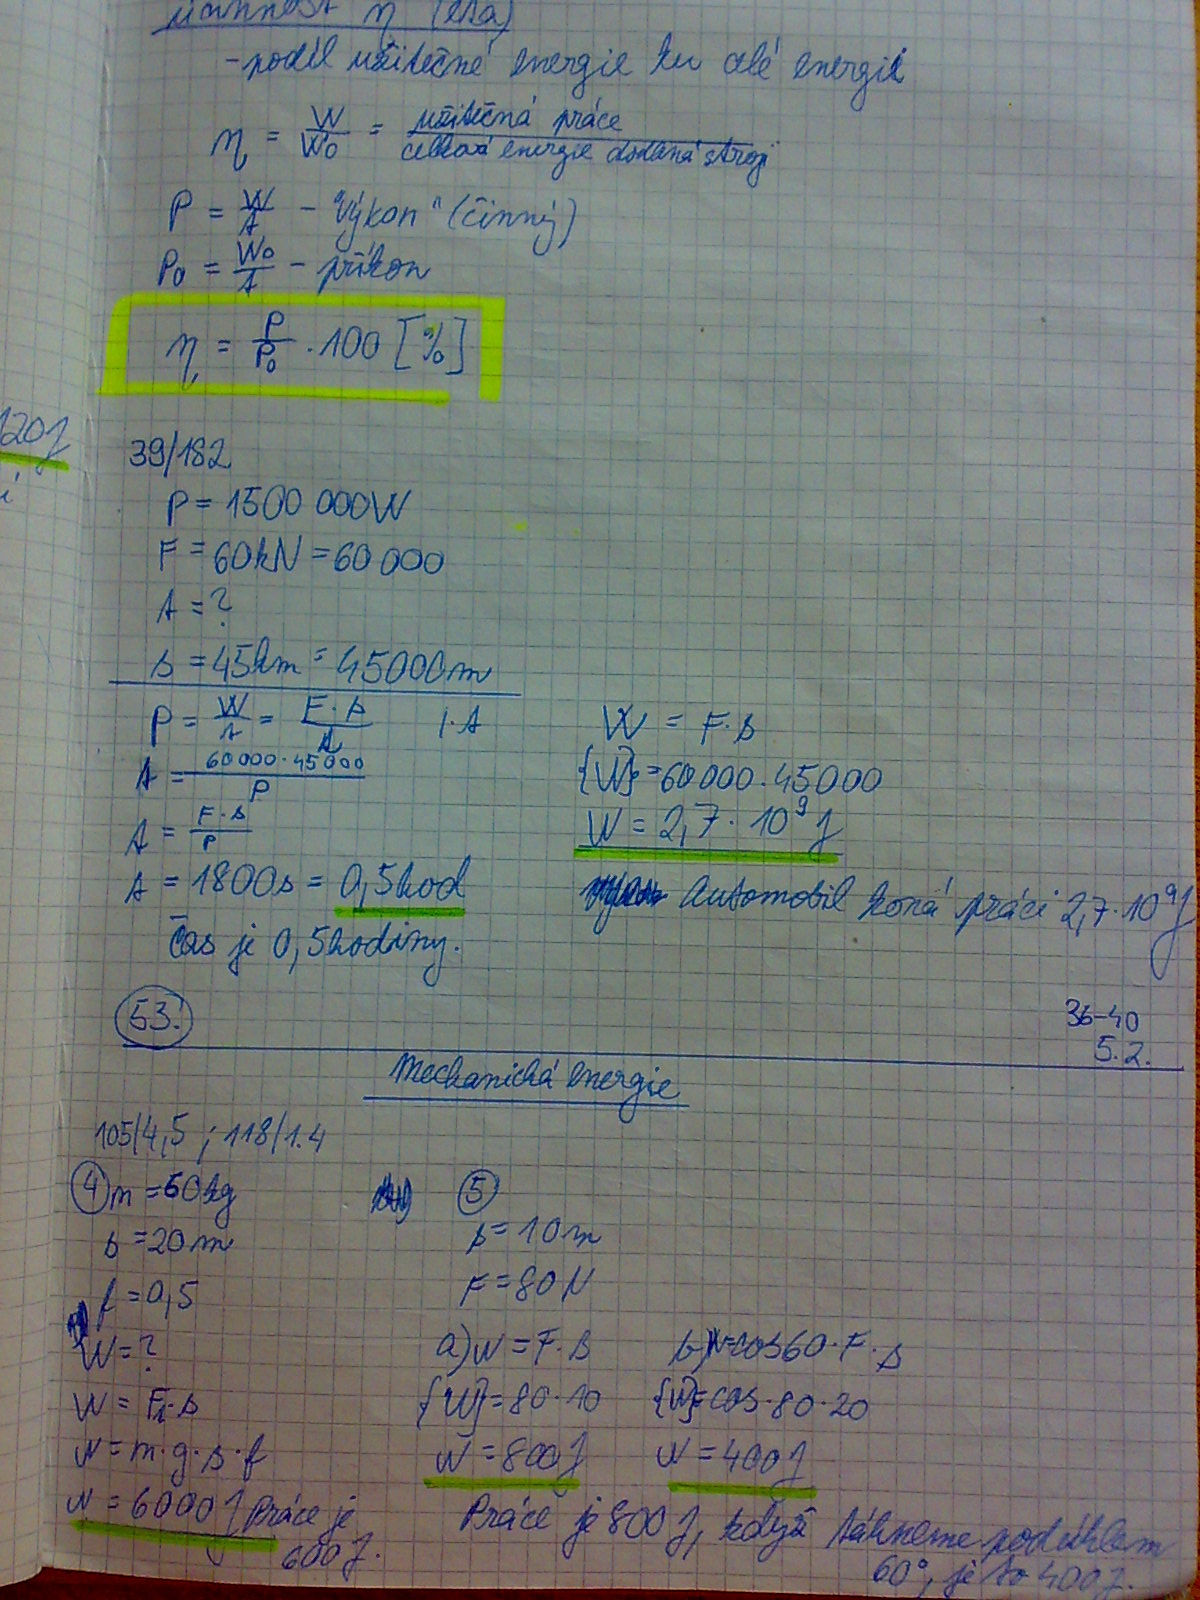 účinnost η (éta)
- podíl užitečné energie ku celé energii
η = W/W₀ = užitečná práce / celková energie dodaná stroji
P = W/t - "výkon" (činný)
P₀ = W₀/t - příkon
η = P/P₀ · 100 [%]
120J
í
39/182
P = 1500 000W
F = 60kN = 60 000
t = ?
s = 45km = 45000m
P = W/t = F·s/t /·t
t = 60000·45000/P
t = F·s/P
t = 1800s = 0,5hod
Čas je 0,5hodiny.
W = F·s
{W} = 60 000·45000
W = 2,7·10⁹J
Automobil koná práci 2,7·10⁹J
53.
36-40
5.2.
Mechanická energie
105/4,5 ; 118/1.4
4 m = 60kg
s = 20m
f = 0,5
W = ?
W = Ft·s
W = m·g·s·f
W = 6000J Práce je
600J.
5
s = 10m
F = 80N
a) W = F·s
{W} = 80·10
W = 800J
b) W = cos60·F·s
{W} = cos·80·20
W = 400J
Práce je 800J, když táhneme pod úhlem
60°, je to 400J.